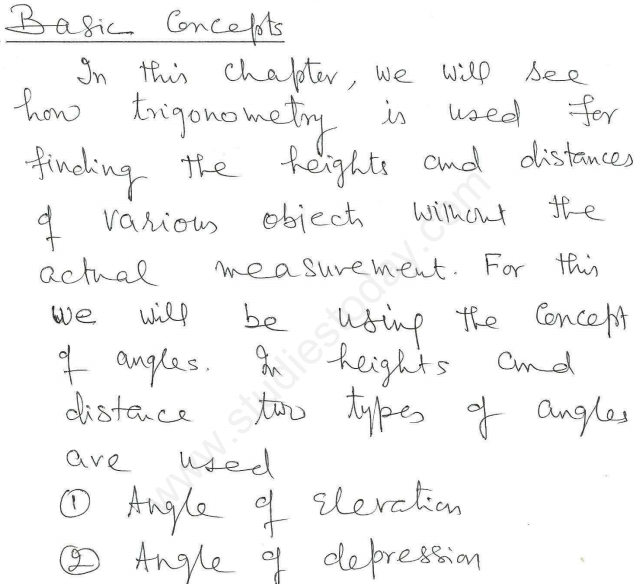 Basic Concepts
In this chapter, we will see
how trigonometry is used for
finding the heights and distances
of various object without the
actual measurement. For this
we will be using the concept
of angles. In heights and
distance two types of angles
are used
① Angle of Elevation
② Angle of depression
www.studiestoday.com